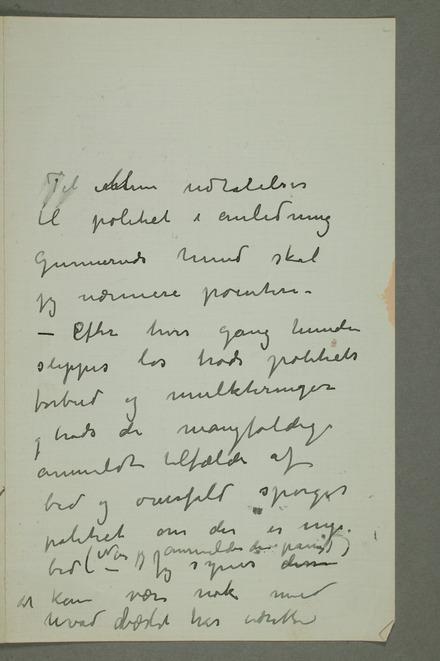 Til udtalelser
til politiet i anledning
Gunneruds hund skal
jeg nærmere pointere –
– Efter hver gang hunden
slippes løs trods politiets
forbud og mulkteringer
og trods de mangfoldige
anmeldte tilfælde af
bid og overfald spørger
politiet om der er nye
bid (Når jeg anmelder
– Jeg synes
at kan være nok med
hvad bæstet har